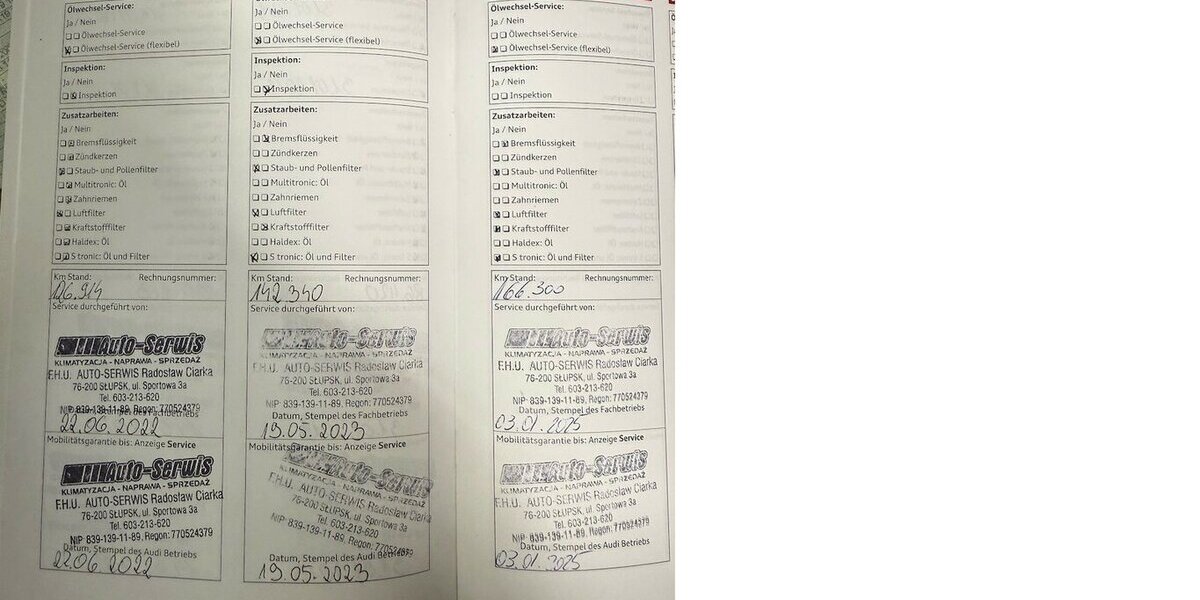 Ölwechsel-Service:
Ja / Nein
Ölwechsel-Service
Ölwechsel-Service (flexibel)
Inspektion:
Ja / Nein
Inspektion
Zusatzarbeiten:
Ja / Nein
Bremsflüssigkeit
Zündkerzen
Staub- und Pollenfilter
Multitronic: Öl
Zahnriemen
Luftfilter
Kraftstofffilter
Haldex: Öl
S tronic: Öl und Filter
Km Stand: Rechnungsnummer:
126.914
Service durchgeführt von:
Auto-Serwis
KLIMATYZACJA - NAPRAWA - SPRZEDAŻ
F.H.U. AUTO-SERWIS Radosław Ciarka
76-200 SŁUPSK, ul. Sportowa 3a
Tel. 603-213-620
NIP 839-139-11-89, Regon: 770524379
22.06.2022
Mobilitätsgarantie bis: Anzeige Service
Auto-Serwis
KLIMATYZACJA - NAPRAWA - SPRZEDAŻ
F.H.U. AUTO-SERWIS Radosław Ciarka
76-200 SŁUPSK, ul. Sportowa 3a
Tel. 603-213-620
NIP 839-139-11-89, Regon: 770524379
Datum, Stempel des Audi Betriebs
22.06.2022
Ja / Nein
Ölwechsel-Service
Ölwechsel-Service (flexibel)
Inspektion:
Ja / Nein
Inspektion
Zusatzarbeiten:
Ja / Nein
Bremsflüssigkeit
Zündkerzen
Staub- und Pollenfilter
Multitronic: Öl
Zahnriemen
Luftfilter
Kraftstofffilter
Haldex: Öl
S tronic: Öl und Filter
Km Stand: Rechnungsnummer:
142.340
Service durchgeführt von:
Auto-Serwis
KLIMATYZACJA - NAPRAWA - SPRZEDAŻ
F.H.U. AUTO-SERWIS Radosław Ciarka
76-200 SŁUPSK, ul. Sportowa 3a
Tel. 603-213-620
NIP 839-139-11-89, Regon: 770524379
Datum, Stempel des Fachbetriebs
19.05.2023
Mobilitätsgarantie bis: Anzeige Service
Auto-Serwis
KLIMATYZACJA - NAPRAWA - SPRZEDAŻ
F.H.U. AUTO-SERWIS Radosław Ciarka
76-200 SŁUPSK, ul. Sportowa 3a
Tel. 603-213-620
NIP 839-139-11-89, Regon: 770524379
Datum, Stempel des Audi Betriebs
19.05.2023
Ölwechsel-Service:
Ja / Nein
Ölwechsel-Service
Ölwechsel-Service (flexibel)
Inspektion:
Ja / Nein
Inspektion
Zusatzarbeiten:
Ja / Nein
Bremsflüssigkeit
Zündkerzen
Staub- und Pollenfilter
Multitronic: Öl
Zahnriemen
Luftfilter
Kraftstofffilter
Haldex: Öl
S tronic: Öl und Filter
Km Stand: Rechnungsnummer:
166.300
Service durchgeführt von:
Auto-Serwis
KLIMATYZACJA - NAPRAWA - SPRZEDAŻ
F.H.U. AUTO-SERWIS Radosław Ciarka
76-200 SŁUPSK, ul. Sportowa 3a
Tel. 603-213-620
NIP 839-139-11-89, Regon: 770524379
Datum, Stempel des Fachbetriebs
03.01.2025
Mobilitätsgarantie bis: Anzeige Service
Auto-Serwis
KLIMATYZACJA - NAPRAWA - SPRZEDAŻ
F.H.U. AUTO-SERWIS Radosław Ciarka
76-200 SŁUPSK, ul. Sportowa 3a
Tel. 603-213-620
NIP 839-139-11-89, Regon: 770524379
Datum, Stempel des Audi Betriebs
03.01.2025